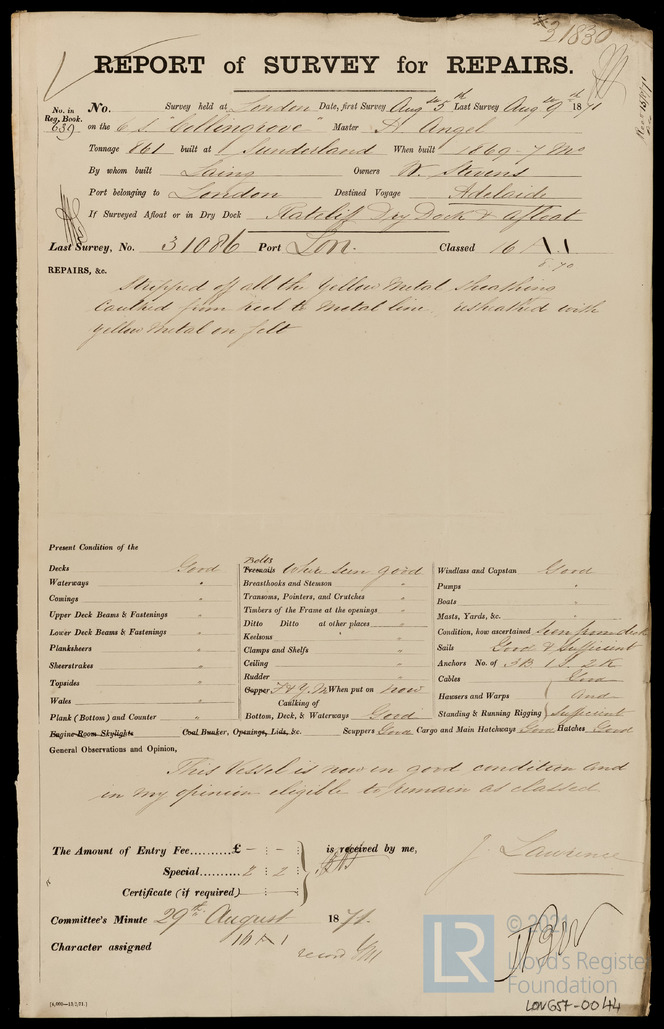 21830
REPORT of SURVEY for REPAIRS.
No. in Reg. Book. 639
No. Survey held at London Date, first Survey Aug 5th Last Survey Aug 9th 1871
on the C S. "Collingrove" Master H Angel
Tonnage 861 built at Sunderland When built 1869-7 Mo
By whom built Laing Owners W. Stevens
Port belonging to London Destined Voyage Adelaide
If Surveyed Afloat or in Dry Dock Ratcliff Dry Dock & afloat
Last Survey, No. 31086 Port Lon. Classed 16 A 1
8.70
REPAIRS, &c.
Stripped off all the Yellow Metal Sheathing
Caulked from keel to metal line, resheathed with
yellow metal on felt
Present Condition of the
Decks Good
Waterways "
Comings "
Upper Deck Beams & Fastenings "
Lower Deck Beams & Fastenings "
Planksheers "
Sheerstrakes "
Topsides "
Wales "
Plank (Bottom) and Counter "
Bolts
Treenails where seen good
Breasthooks and Stemson "
Transoms, Pointers, and Crutches "
Timbers of the Frame at the openings "
Ditto Ditto at other places "
Keelsons "
Clamps and Shelfs "
Ceiling "
Rudder "
Copper F & Y.M When put on now
Caulking of
Bottom, Deck, & Waterways Good
Windlass and Capstan Good
Pumps "
Boats "
Masts, Yards, &c. "
Condition, how ascertained Seen from deck
Sails Good & Sufficient
Anchors No. of 3B 1S. 2K
Cables Good
Hausers and Warps and
Standing & Running Rigging Sufficient
Engine Room Skylights Coal Bunker, Openings, Lids, &c. Scuppers Good Cargo and Main Hatchways Good Hatches Good
General Observations and Opinion,
This Vessel is now in good condition and
in my opinion eligible to remain as classed
The Amount of Entry Fee..........£ - : - : is received by me,
Special.......... 2 : 2 :
J. Lawrence
Certificate (if required)
Committee's Minute 29th August 1871.
Character assigned 16 A 1
record
[6,000—13/2/71.]
LR
© 2021
Lloyd's Register
Foundation
LON657-0044